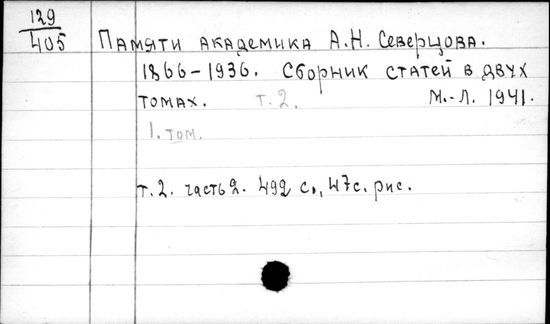 129
405
Памяти академика А.Н. Северцова.
1866-1936. Сборник статей в двух
томах. т. 2. М.-Л. 1941.
1. том.
т. 2. часть 2. 492 с., 47 с. рис.